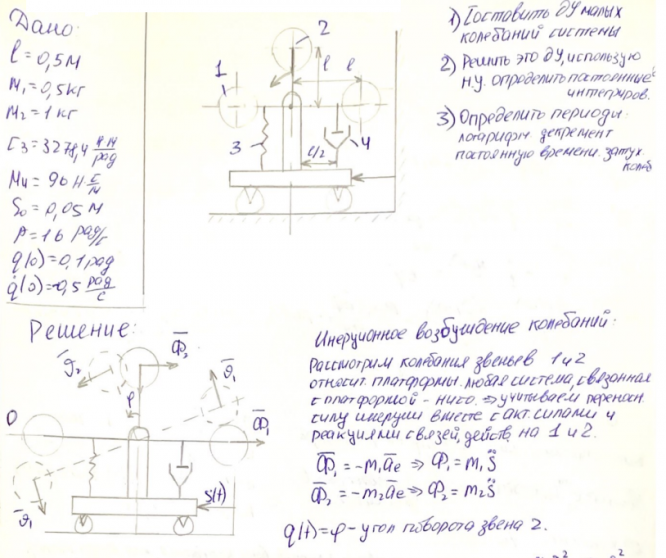 Дано:
l = 0,5м
m₁ = 0,5кг
m₂ = 1 кг
C₃ = 3278,4 Нм/рад
M₄ = 96 Н·с/м
S₀ = 0,05 м
p = 16 рад/с
q(0) = 0,1 рад
q̇(0) = 0,5 рад/с
1
2
l
l
3
4
l/2
1) Составить ДУ малых
колебаний системы
2) Решить это ДУ, использую
н.у. определить постоянные
интегриров.
3) Определить периоды.
логарифм. декремент
постоянную времени. затух.
колеб
Решение:
Ф̄₂
ϑ̄₂
ϑ̄₁
φ
O
Ф̄₁
ϑ̄₁
S(t)
Инерционное возбуждение колебаний:
Рассмотрим колебания звеньев 1 и 2
относит. платформы. любая система, связанная
с платформой - нисо. ⇒ учитываем переносн.
силу инерции вместе с акт. силами и
реакциями связей, действ, на 1 и 2.
Ф̄₁ = -m₁āe ⇒ Ф₁ = m₁S̈
Ф̄₂ = -m₂āe ⇒ Ф₂ = m₂S̈
q(t) = φ - угол поворота звена 2.